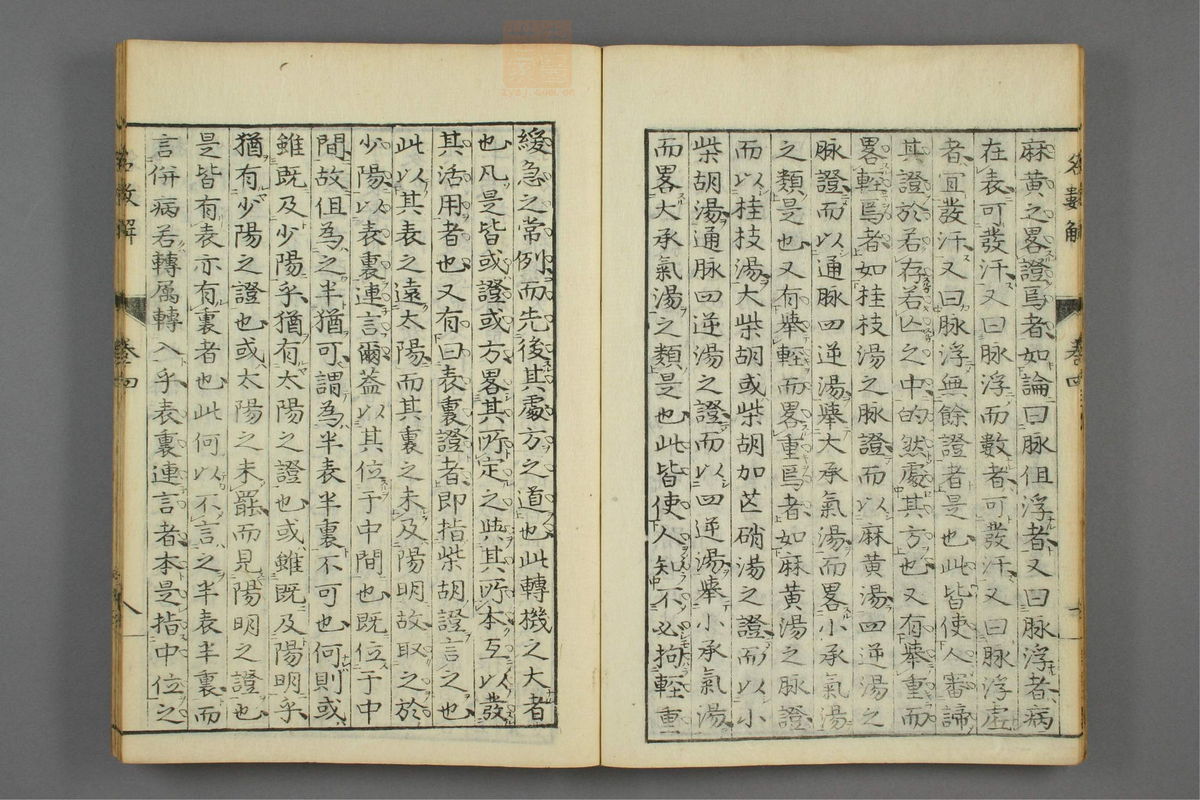 麻黃之畧證焉者如論曰脉但浮者又曰脉浮者病
在表可發汗又曰脉浮而數者可發汗又曰脉浮虛
者宜發汗又曰脉浮無餘證者是也此皆使人審諦
其證於若存若亾之中的然處其方也又有擧重而
畧輕焉者如桂枝湯之脉證而以麻黃湯四逆湯之
脉證而以通脉四逆湯擧大承氣湯而畧小承氣湯
之類是也又有擧輕而畧重焉者如麻黃湯之脉證
而以桂枝湯大柴胡或柴胡加芒硝湯之證而以小
柴胡湯通脉四逆湯之證而以四逆湯擧小承氣湯
而畧大承氣湯之類是也此皆使人知不必拘輕重
緩急之常例而先後其處方之道也此轉機之大者
也凡是皆或證或方畧其所定之與其所本互以發
其活用者也又有曰表裏證者即指柴胡證言之也
此以其表之遠太陽而其裏之未及陽明故取之於
少陽以表裏連言爾蓋以其位于中間也既位于中
間故但為之半猶可謂為半表半裏不可也何則或
雖既及少陽乎猶有太陽之證也或雖既及陽明乎
猶有少陽之證也或太陽之未罷而見陽明之證也
是皆有表亦有裏者也此何以不言之半表半裏而
言併病若轉属轉入乎表裏連言者本是指中位之
名數解
卷四
名數解
卷四
八